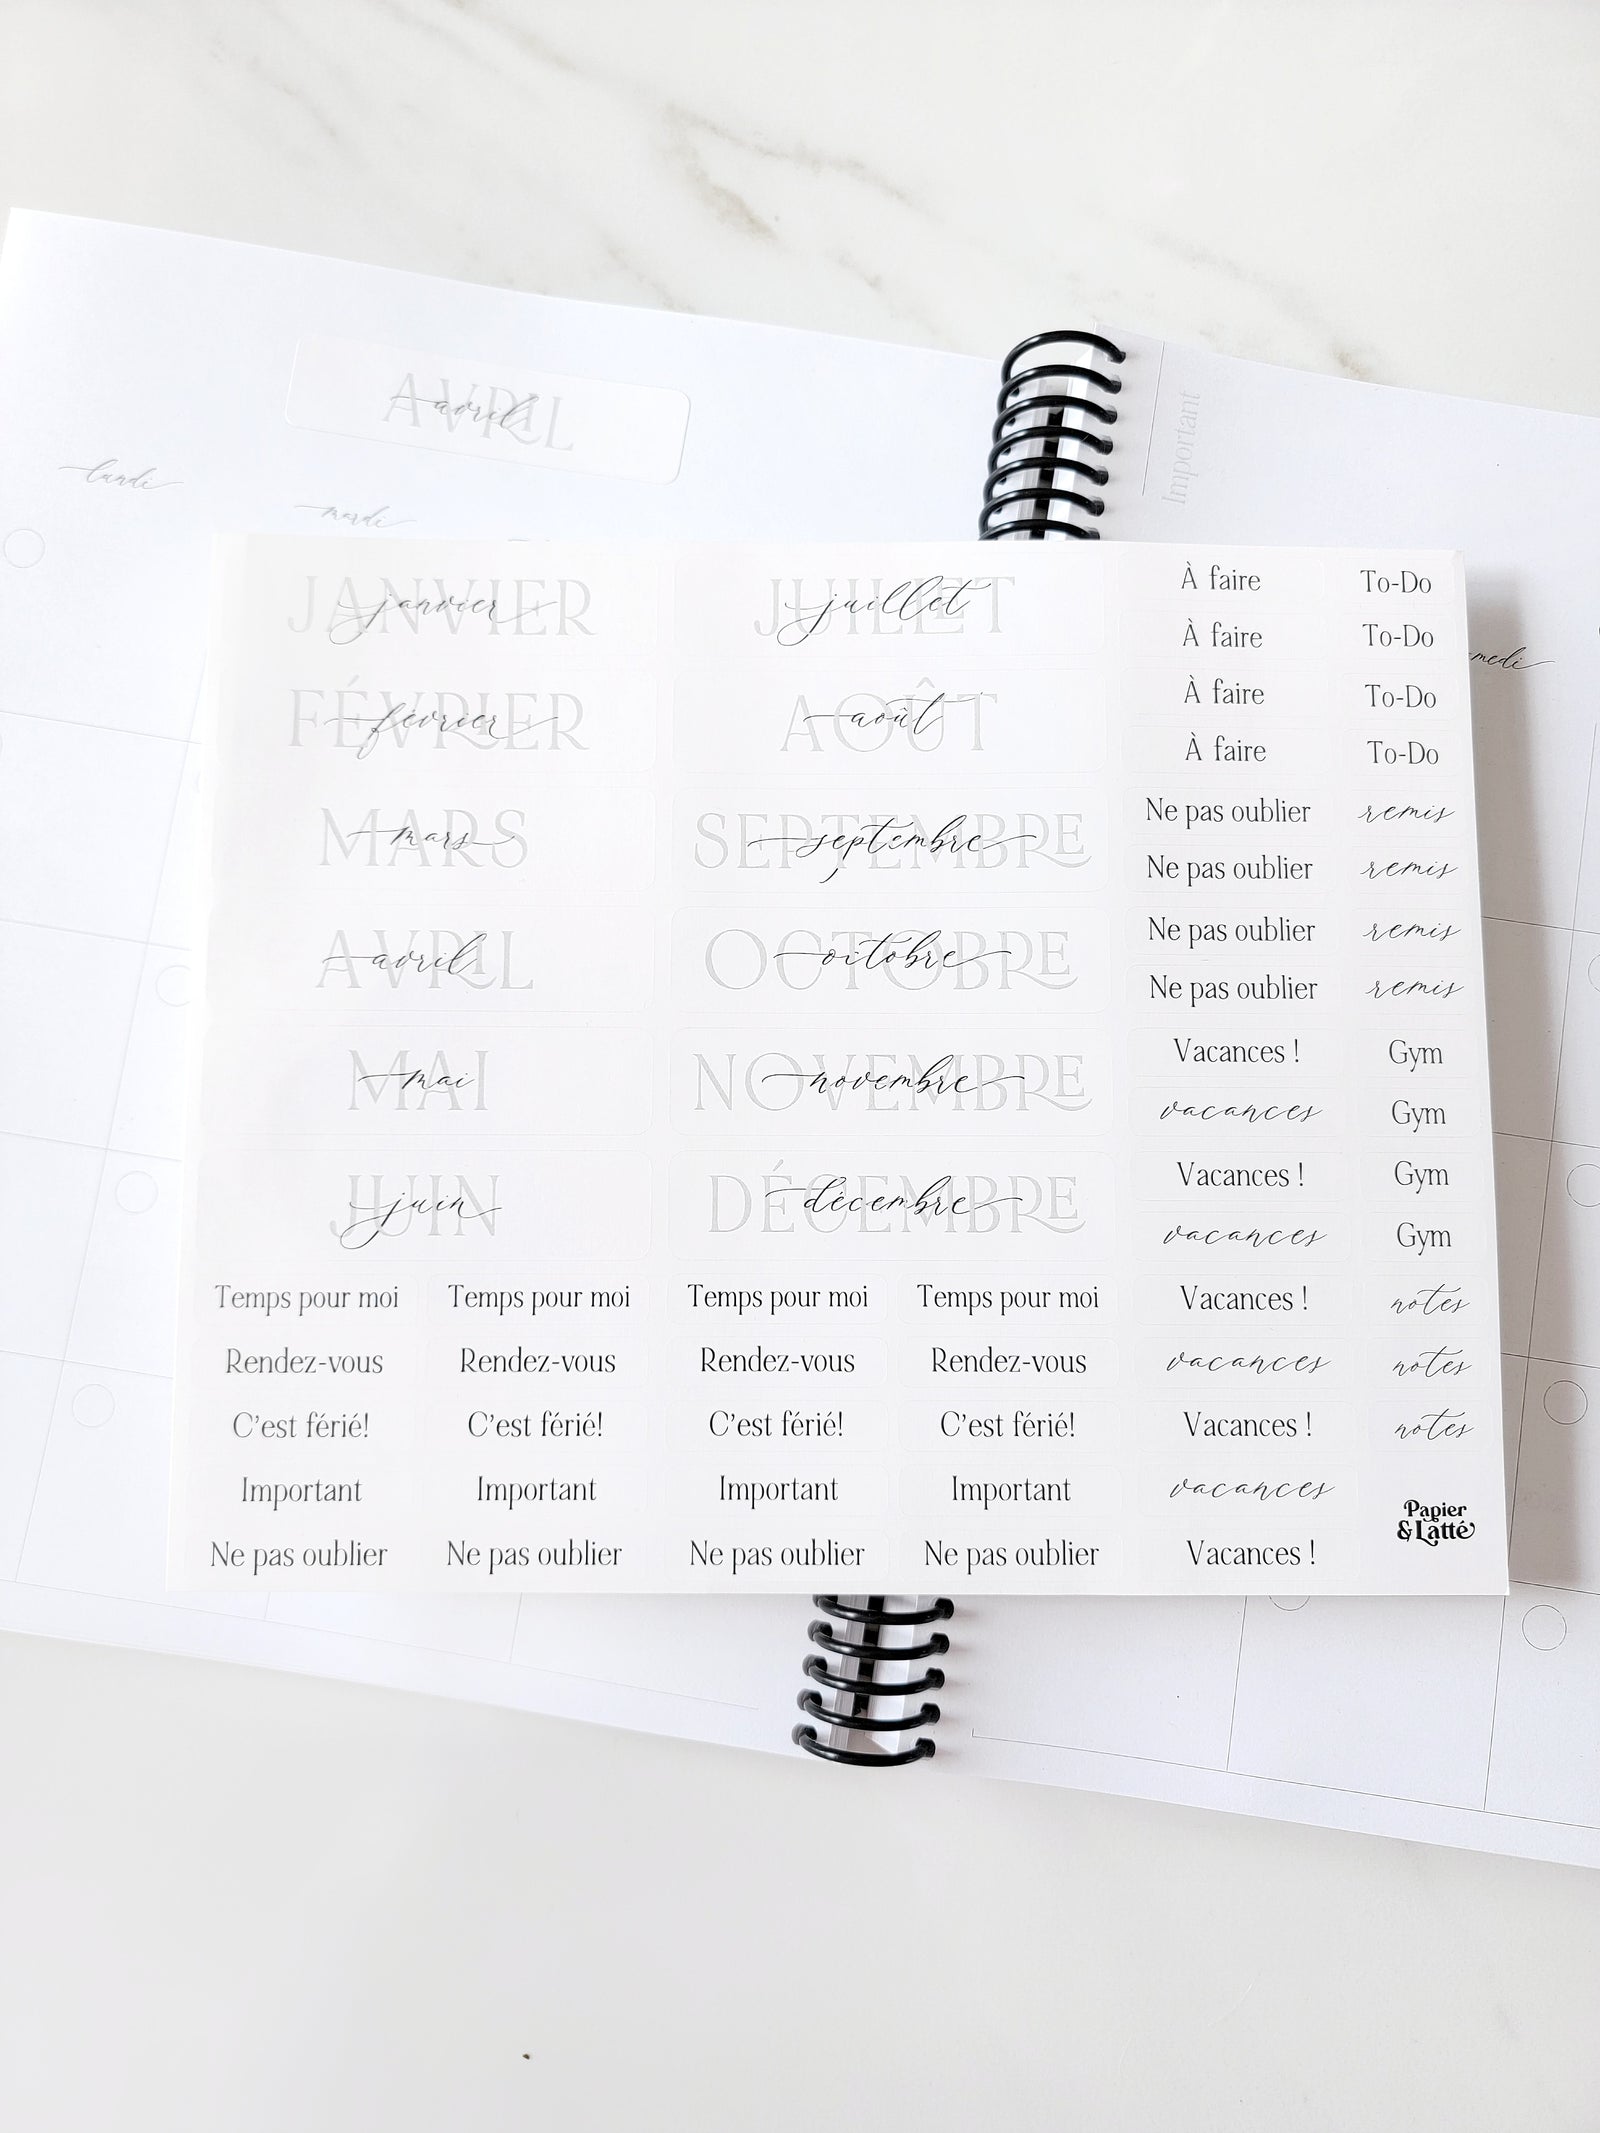 AVRIL
avril
lundi
mardi
Important
medi
JANVIER
janvier
JUILLET
juillet
À faire
To-Do
À faire
To-Do
FÉVRIER
février
AOÛT
août
À faire
To-Do
À faire
To-Do
MARS
mars
SEPTEMBRE
septembre
Ne pas oublier
remis
Ne pas oublier
remis
AVRIL
avril
OCTOBRE
oitobre
Ne pas oublier
remis
Ne pas oublier
remis
MAI
mai
NOVEMBRE
novembre
Vacances !
Gym
vacances
Gym
JUIN
juin
DÉCEMBRE
décembre
Vacances !
Gym
vacances
Gym
Temps pour moi
Temps pour moi
Temps pour moi
Temps pour moi
Vacances !
notes
Rendez-vous
Rendez-vous
Rendez-vous
Rendez-vous
vacances
notes
C'est férié!
C'est férié!
C'est férié!
C'est férié!
Vacances !
notes
Important
Important
Important
Important
vacances
Ne pas oublier
Ne pas oublier
Ne pas oublier
Ne pas oublier
Vacances !
Papier
&Latté